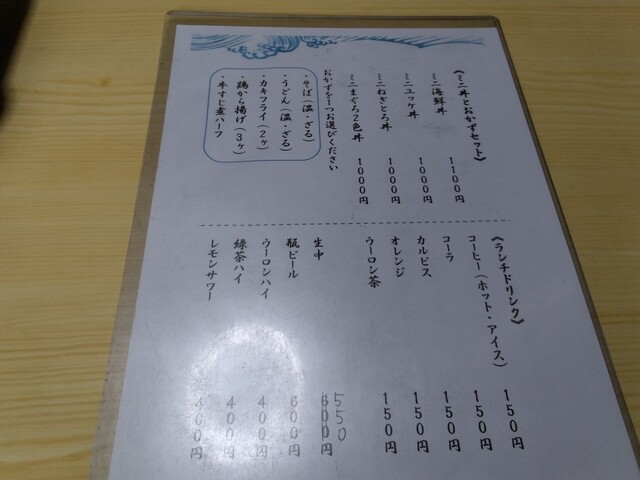 《ミニ丼とおかずセット》
ミニ海鮮丼 1100円
ミニユッケ丼 1000円
ミニねぎとろ丼 1000円
ミニまぐろ2色丼 1000円
おかずを1つお選びください
・そば(温・ざる)
・うどん(温・ざる)
・カキフライ(2ヶ)
・鶏から揚げ(3ヶ)
・牛すじ煮ハーフ
《ランチドリンク》
コーヒー(ホット・アイス) 150円
コーラ 150円
カルピス 150円
オレンジ 150円
ウーロン茶 150円
生中 600円 550
瓶ビール 600円
ウーロンハイ 400円
緑茶ハイ 400円
レモンサワー 400円